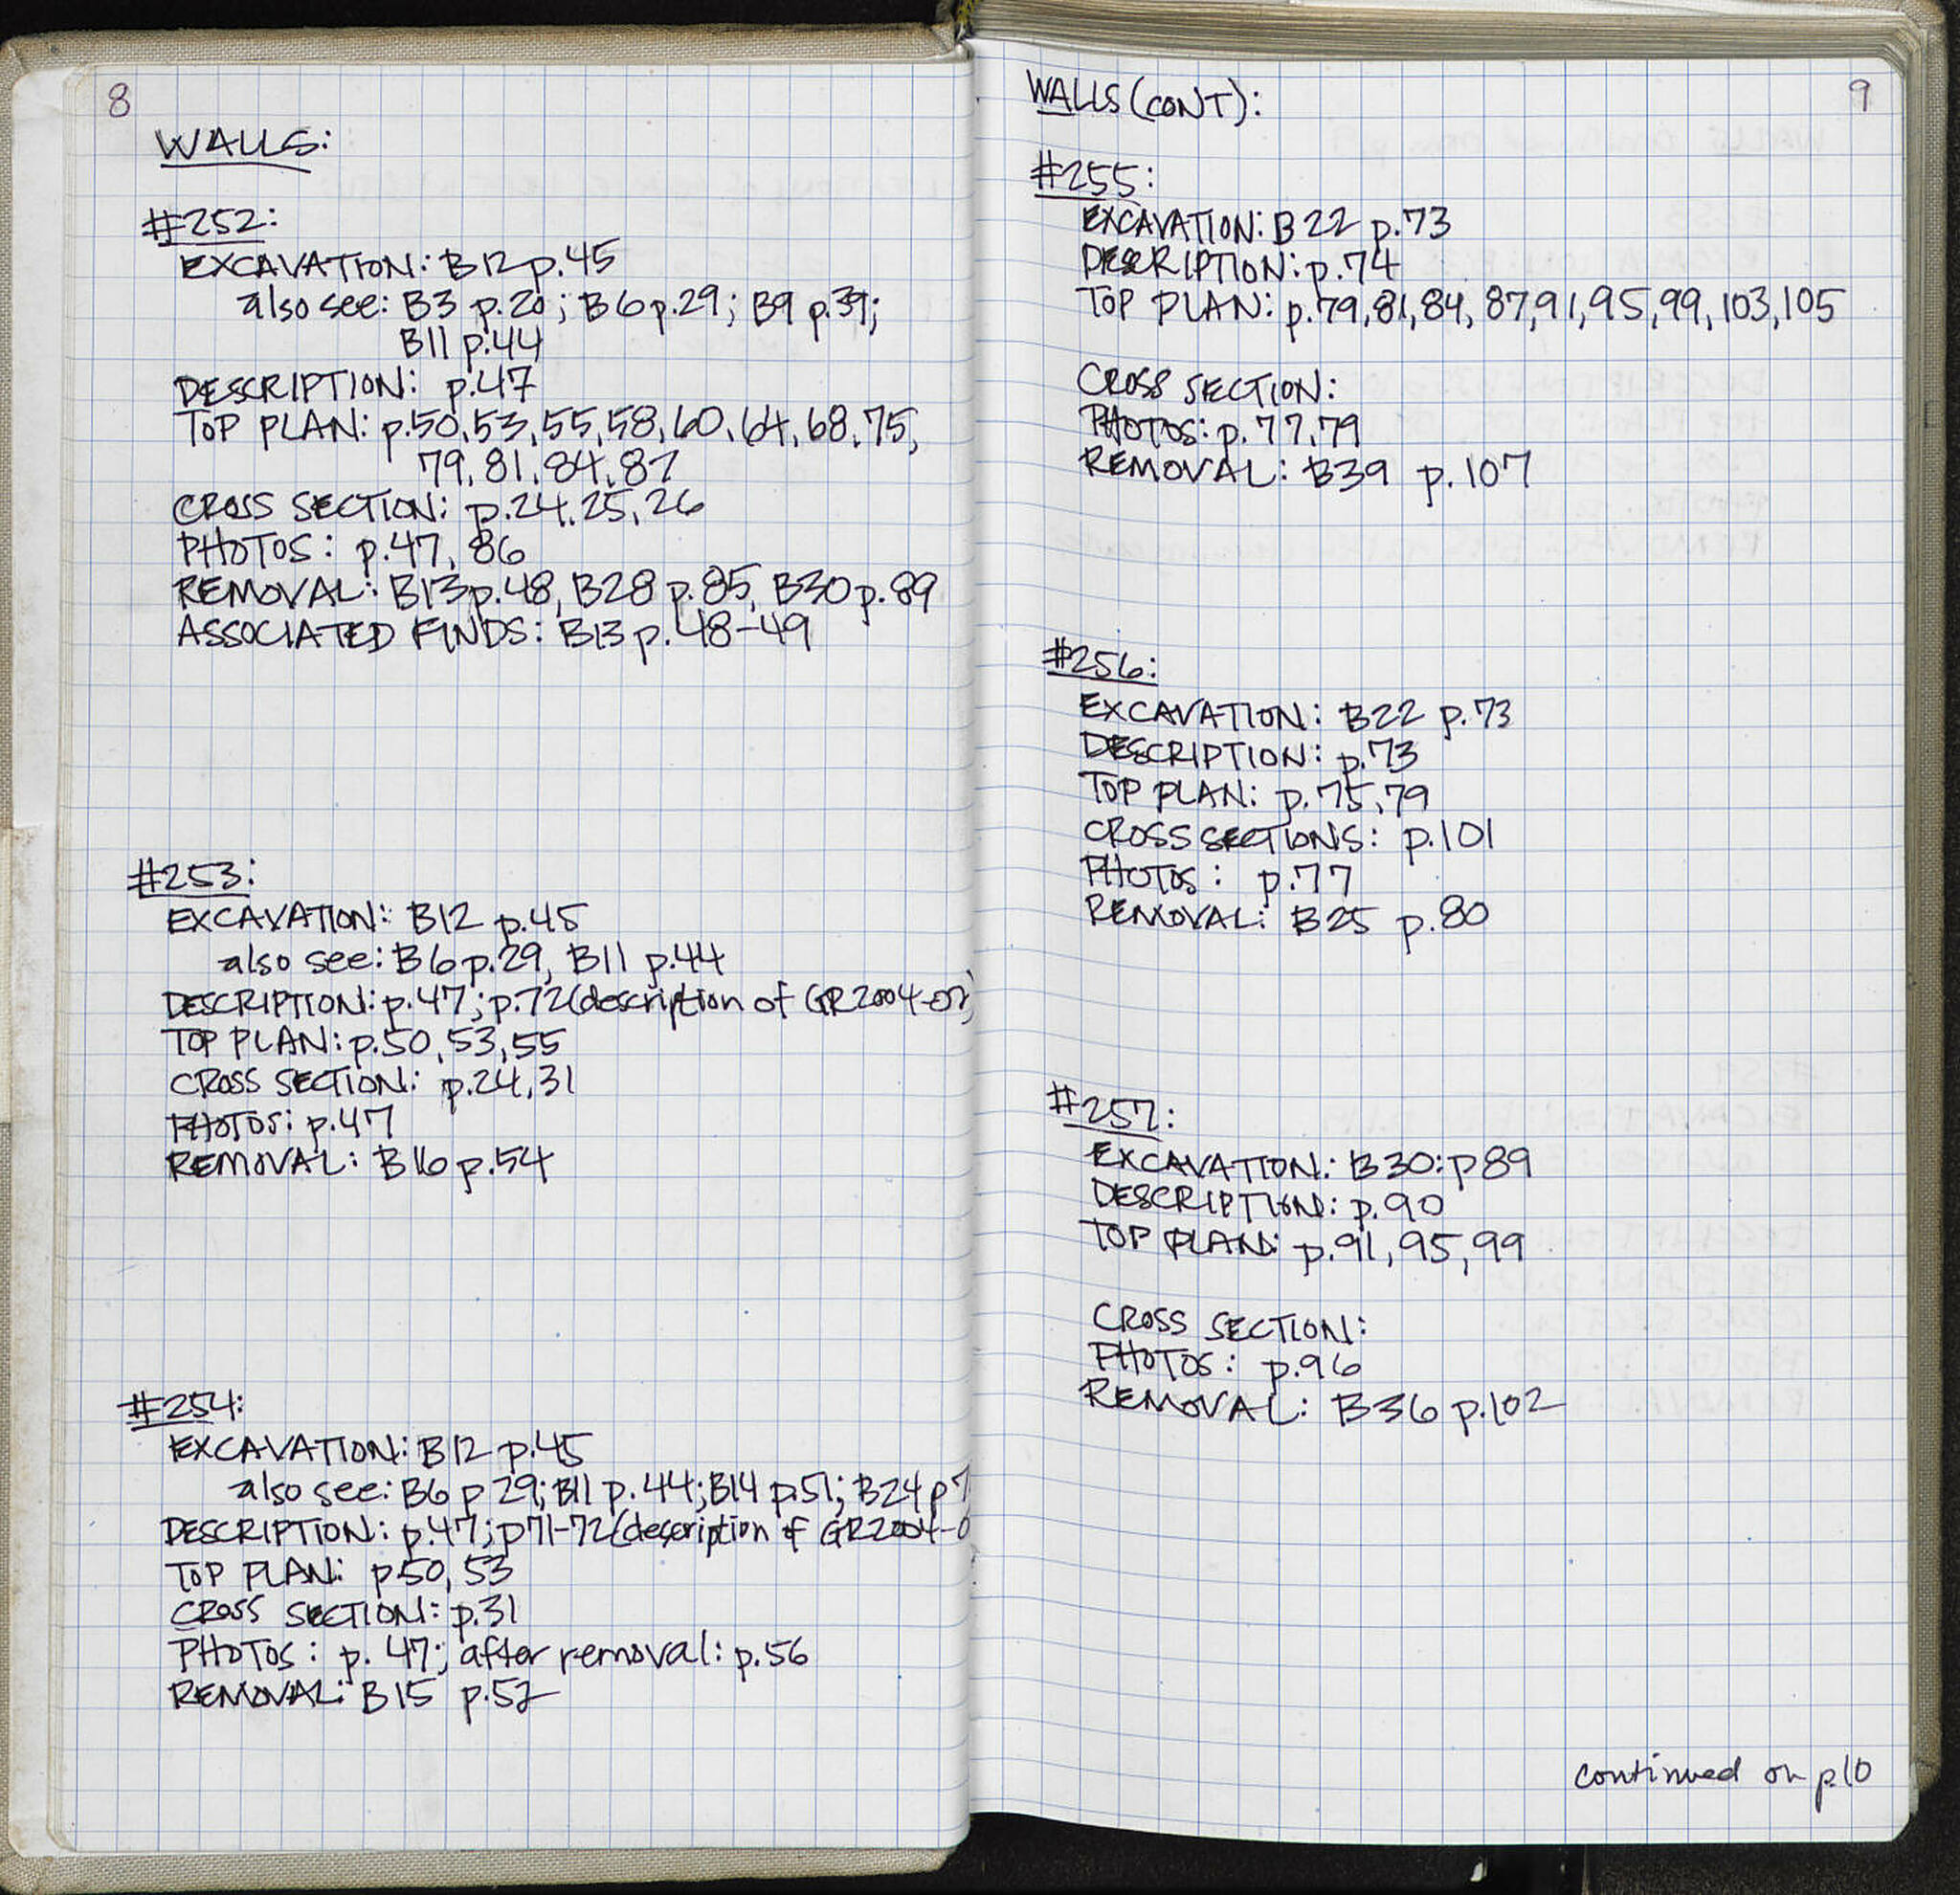 8
WALLS:
#252:
EXCAVATION: B12 p.45
also see: B3 p.20; B6 p.29; B9 p.39;
B11 p.44
DESCRIPTION: p.47
TOP PLAN: p.50,53,55,58,60,64,68,75,
79,81,84,87
CROSS SECTION: p.24,25,26
PHOTOS: p.47, 86
REMOVAL: B13 p.48, B28 p.85, B30 p.89
ASSOCIATED FINDS: B13 p.48-49
#253:
EXCAVATION: B12 p.45
also see: B6 p.29, B11 p.44
DESCRIPTION: p.47; p.72 (description of GR2004-02)
TOP PLAN: p.50,53,55
CROSS SECTION: p.24,31
PHOTOS: p.47
REMOVAL: B16 p.54
#254:
EXCAVATION: B12 p.45
also see: B6 p 29; B11 p.44; B14 p.51; B24 p7
DESCRIPTION: p.47; p71-72 (description of GR2004-0
TOP PLAN: p50, 53
CROSS SECTION: p.31
PHOTOS: p. 47; after removal: p.56
REMOVAL: B15 p.52
9
WALLS (CONT):
#255:
EXCAVATION: B22 p.73
DESCRIPTION: p.74
TOP PLAN: p.79,81,84,87,91,95,99,103,105
CROSS SECTION:
PHOTOS: p.77,79
REMOVAL: B39 p.107
#256:
EXCAVATION: B22 p.73
DESCRIPTION: p.73
TOP PLAN: p.75,79
CROSS SECTIONS: p.101
PHOTOS: p.77
REMOVAL: B25 p.80
#257:
EXCAVATION: B30: p89
DESCRIPTION: p.90
TOP PLAN: p.91, 95, 99
CROSS SECTION:
PHOTOS: p.96
REMOVAL: B36 p.102
continued on p10